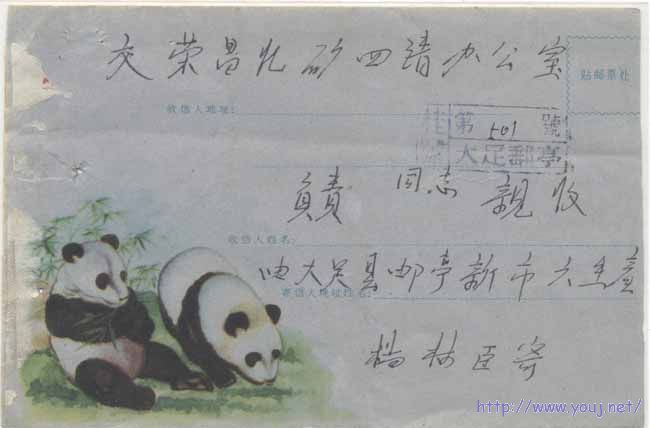 交荣昌北矿四清办公室
贴邮票处
收信人地址:
挂
第 501 號
大足郵亭
負责 同志 親收
收信人姓名:
大足县邮亭新市六
寄信人地址姓名:
杨林臣寄
http://www.youj.net/